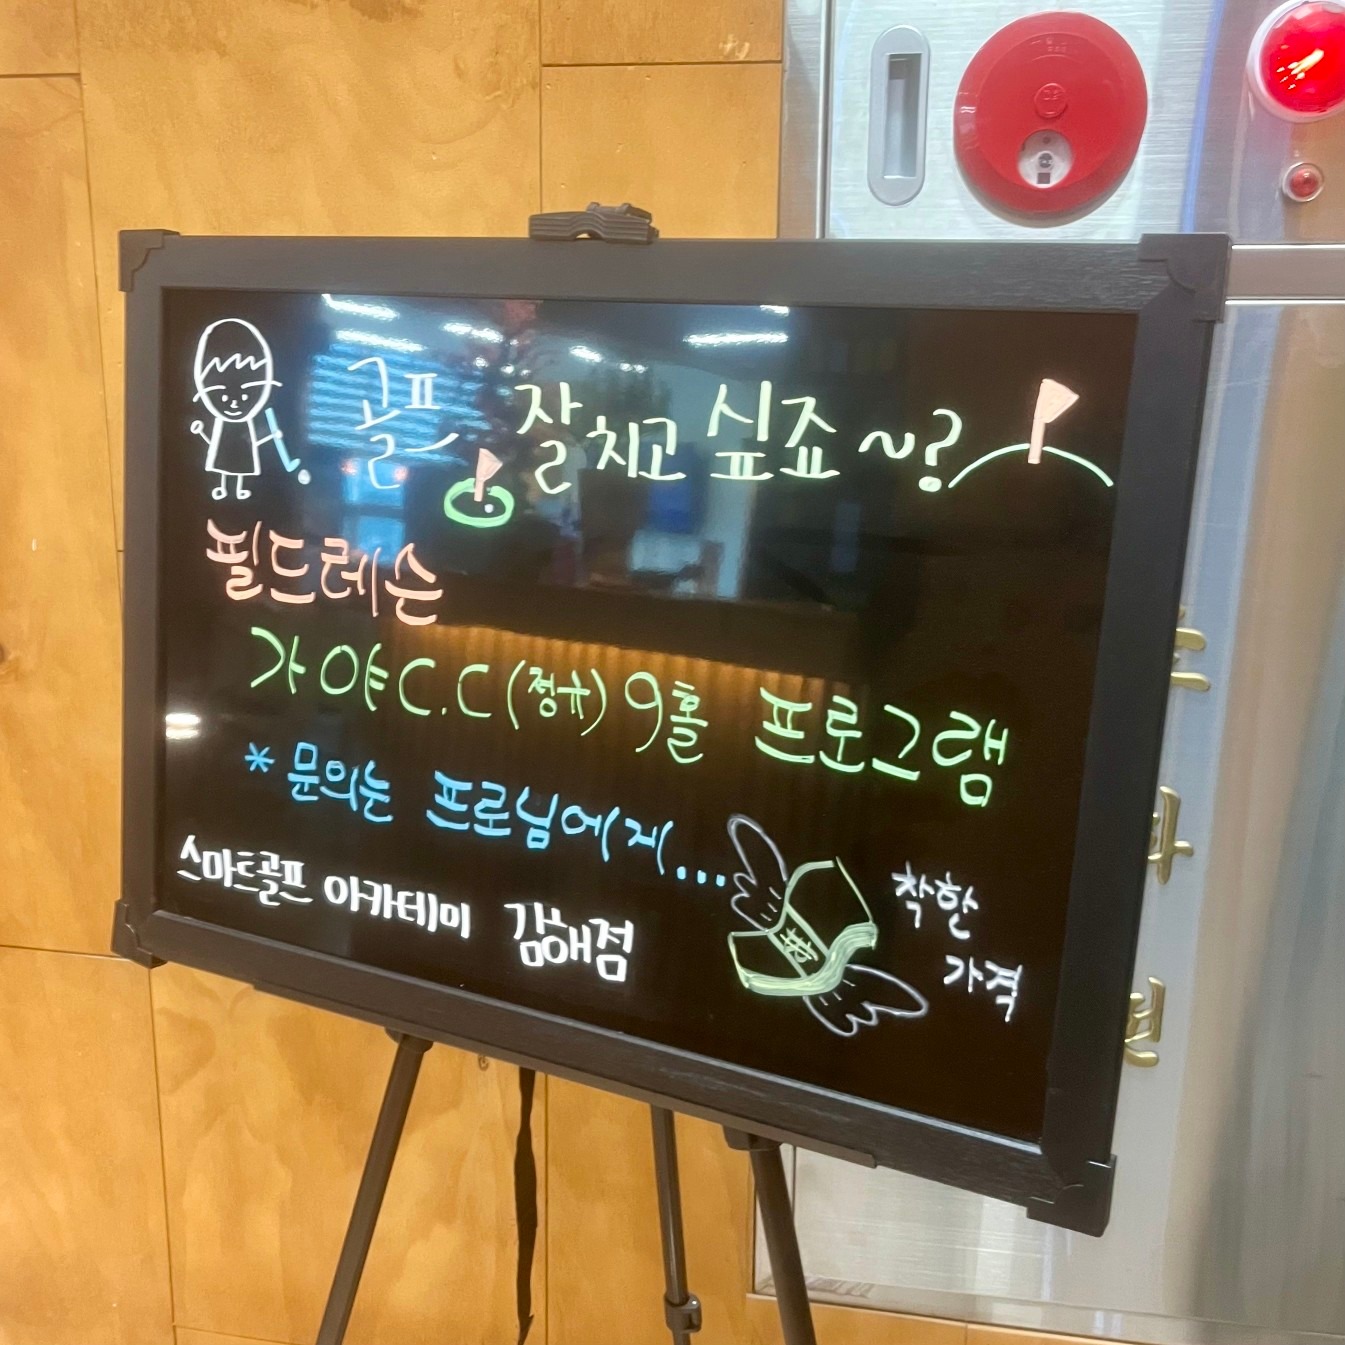 골프 잘치고 싶죠~?
필드레슨
가야C.C(정규) 9홀 프로그램
* 문의는 프로님에게...
스마트골프 아카데미 김해점
착한
가격